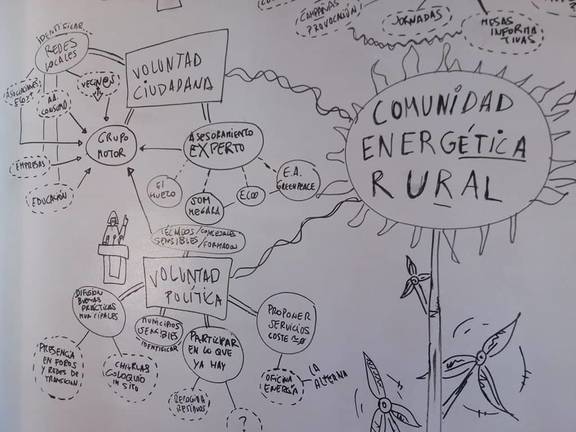 CAMPAÑAS
PROVOCACIÓN
JORNADAS
MESAS
INFORMA
TIVAS
IDENTIFICAR
REDES
LOCALES
VECIN@S
AA
CONSUMO
EMPRESAS
EDUCACIÓN
GRUPO
MOTOR
VOLUNTAD
CIUDADANA
ASESORAMIENTO
EXPERTO
EL
HUECO
SOM
MEGARA
ECOO
E.A.
GREENPEACE
COMUNIDAD
ENERGÉTICA
RURAL
TÉCNICOS/CONCEJALES
SENSIBLES/FORMADOS
VOLUNTAD
POLÍTICA
DIFUSIÓN
BUENAS
PRÁCTICAS
MUNICIPALES
PRESENCIA
EN FOROS
Y REDES DE
TRANSICIÓN
CHARLAS
COLOQUIO
IN SITU
MUNICIPIOS
SENSIBLES
IDENTIFICAR
PARTICIPAR
EN LO QUE
YA HAY
RECOGIDA
RESIDUOS
?
PROPONER
SERVICIOS
COSTE
OFICINA
ENERGÍA
LA